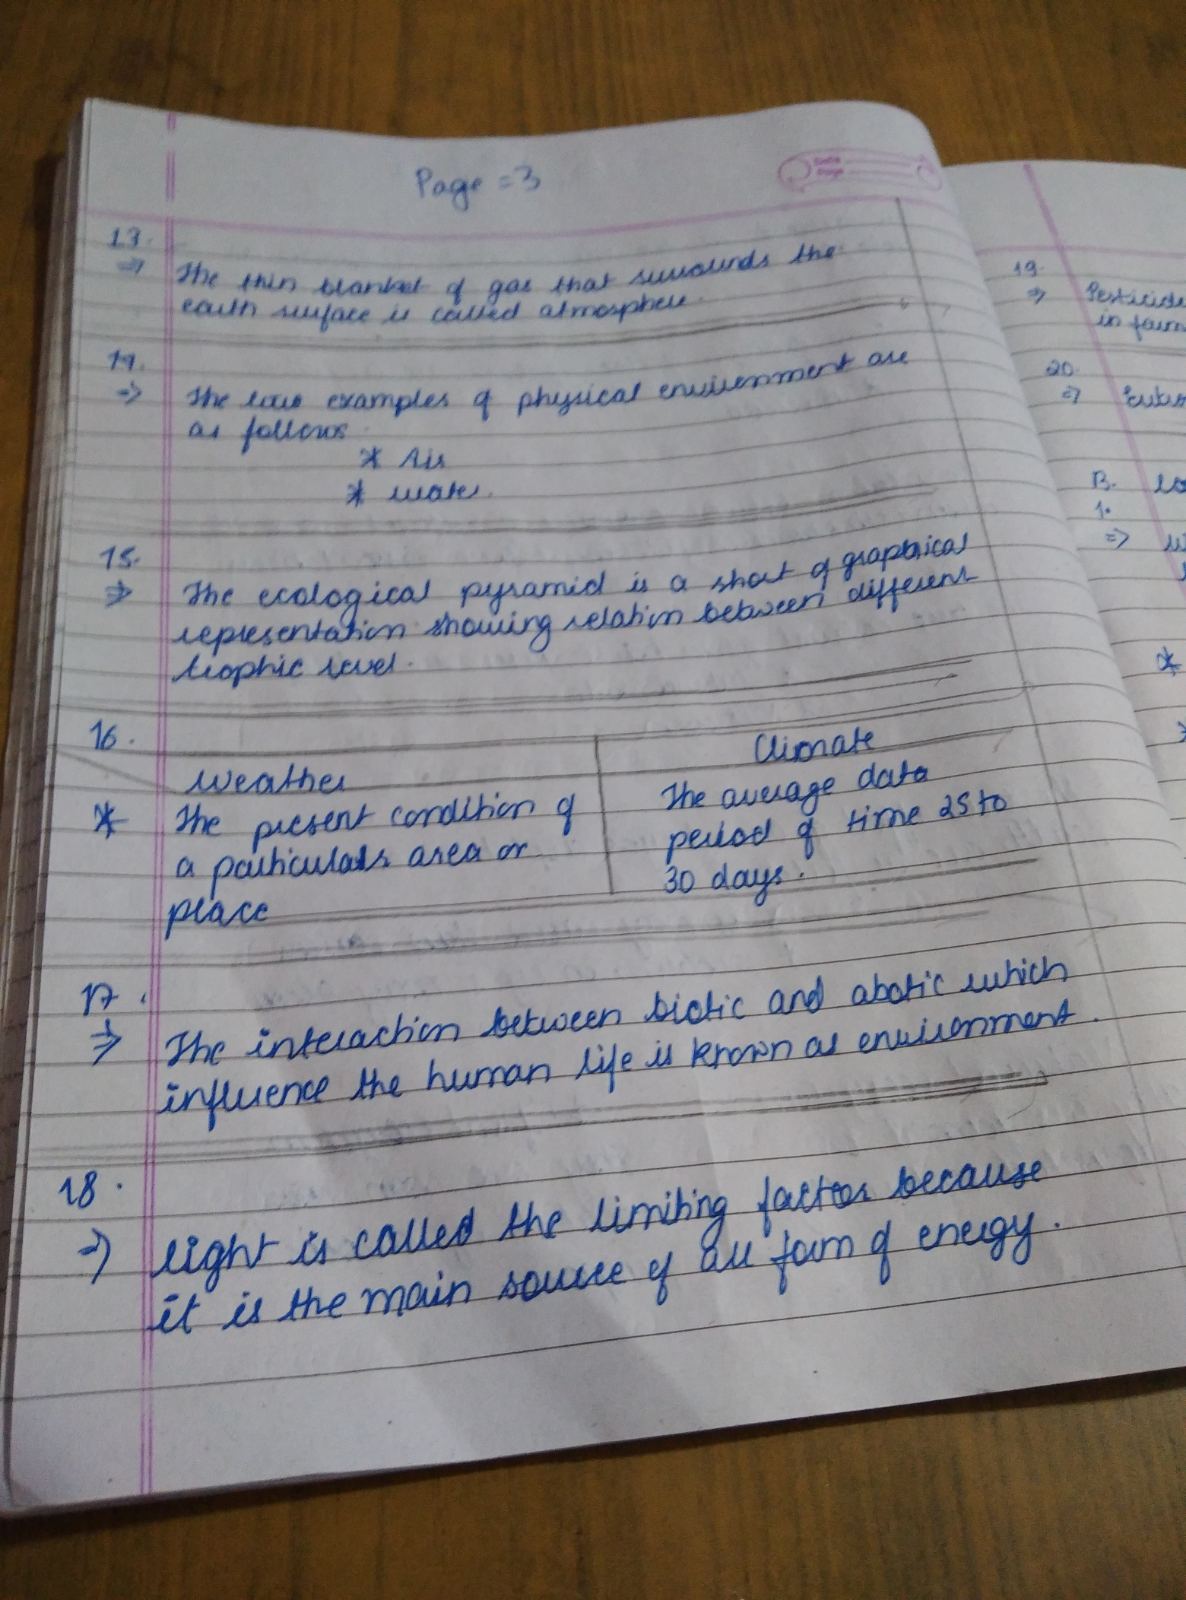 Page = 3
Date
Page
13.
⇒ The thin blanket of gas that surrounds the
earth surface is called atmosphere.
14.
⇒ The two examples of physical environment are
as follows
* Air
* water.
15.
⇒ The ecological pyramid is a short of graphical
representation showing relation between different
trophic level.
16.
Weather
* The present condition of
a particulars area or
place
Climate
The average data
period of time 25 to
30 days.
17.
⇒ The interaction between biotic and abotic which
influence the human life is known as environment.
18.
⇒ light is called the limiting factors because
it is the main source of all form of energy.
19.
⇒
in farm
20.
⇒
B.
1.
⇒
*